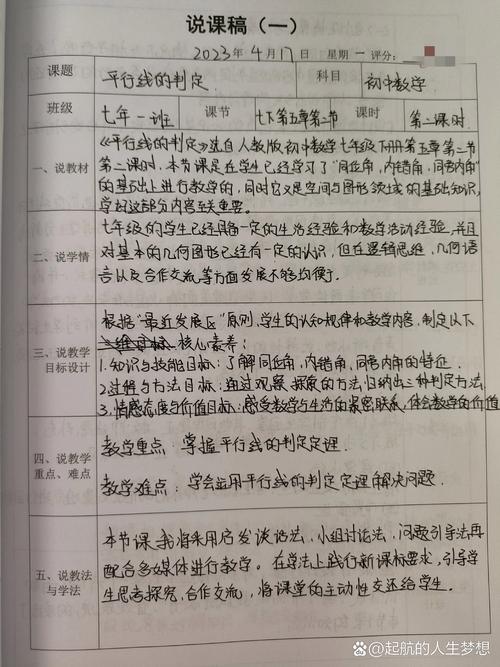 说课稿（一）
2023年4月17日 星期一 评分：
课题 平行线的判定 科目 初中数学
班级 七年一班 课节 七下第五章第二节 课时 第二课时
一、说教材
《平行线的判定》选自人教版初中数学七年级下册第五章第二节
第二课时，本节课是在学生已经学习了"同位角，内错角，同旁内角"
的基础上进行教学的，同时它又是空间与图形领域的基础知识，
学好这部分内容至关重要。
二、说学情
七年级的学生已经具备一定的生活经验和数学活动经验，并且
对基本的几何图形已经有一定的认识，但在逻辑思维，几何语
言以及合作交流等方面发展不够均衡。
三、说教学
目标设计
根据"最近发展区"原则，学生的认知规律和教学内容，制定以下
核心素养：
1.知识与技能目标：了解同位角，内错角，同旁内角的特征.
2.过程与方法目标：通过观察、探索的方法，归纳出三种判定方法
3.情感态度与价值目标：感受数学与生活的紧密联系，体会数学的价值
四、说教学
重点、难点
教学重点：掌握平行线的判定定理.
教学难点：学会运用平行线的判定定理解决问题.
五、说教法
与学法
本节课我将采用启发谈话法，小组讨论法，问题引导法再
配合多媒体进行教学。在学法上践行新课标要求，引导学
生思考探究，合作交流，将课堂的主动性交还给学生.
百家号/起航的人生梦想